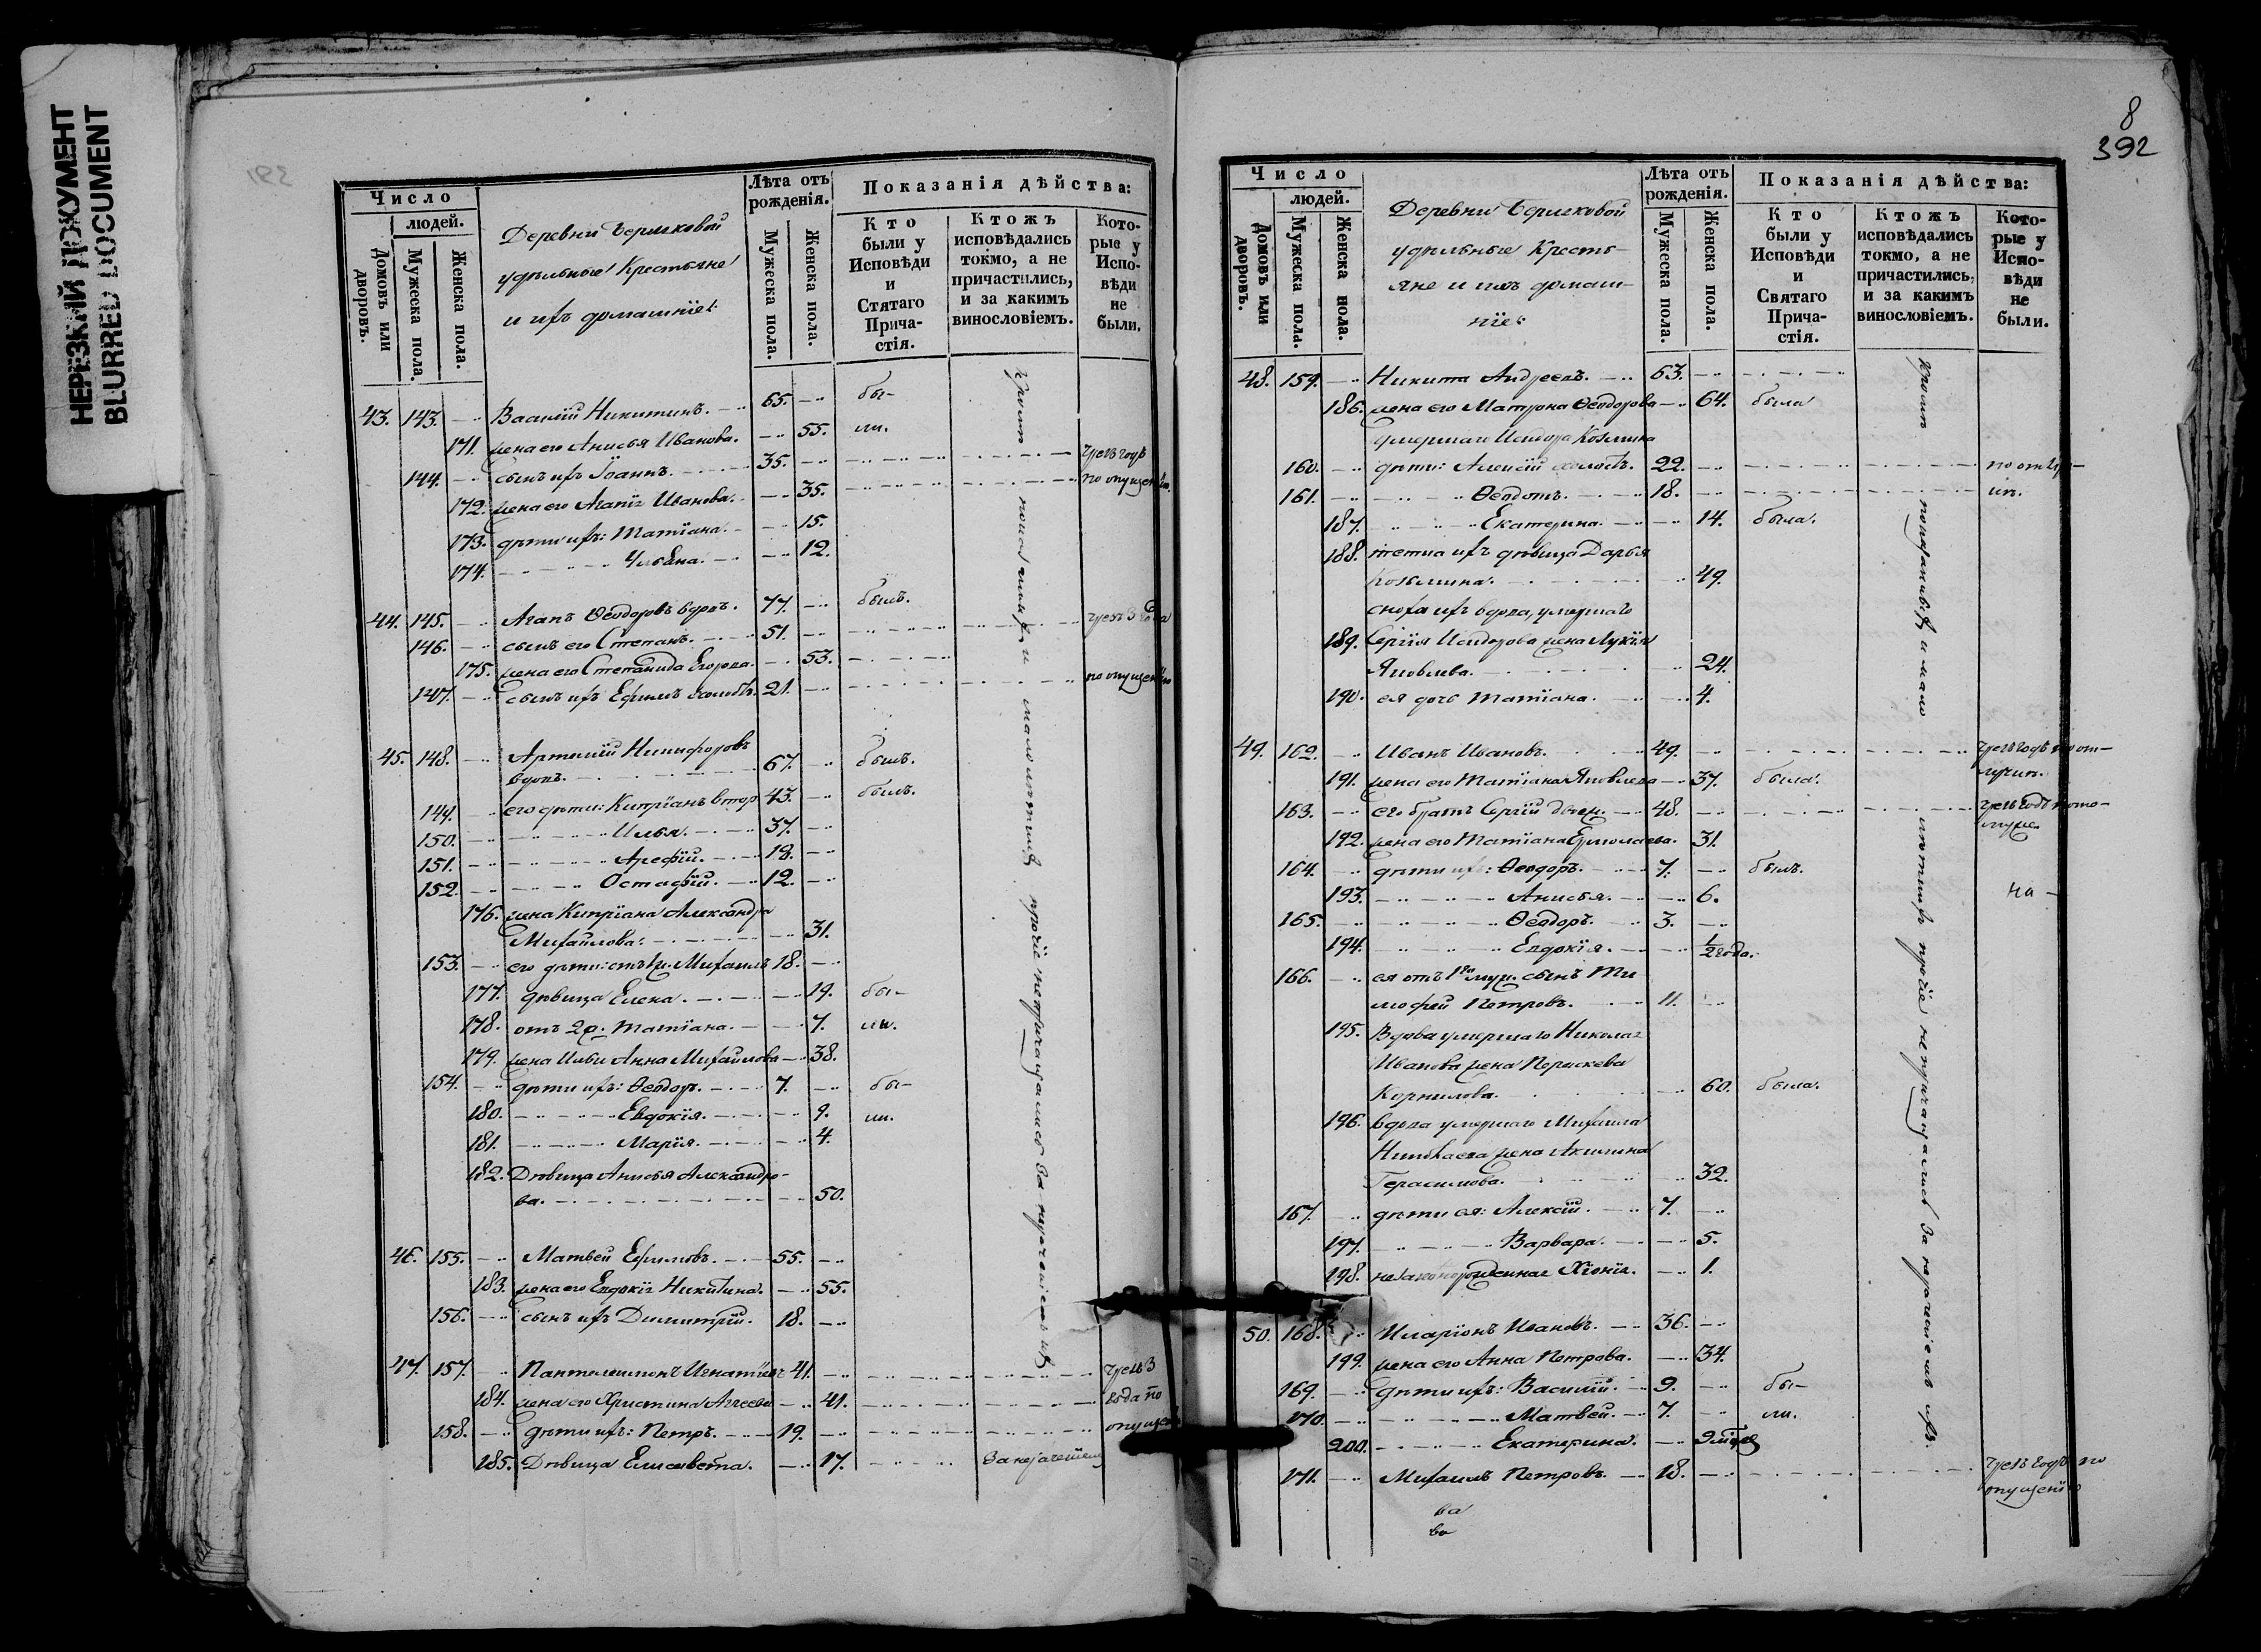 НЕРЕЗКИЙ ДОКУМЕНТ
BLURRED DOCUMENT
Число
людей.
Домовъ или дворовъ.
Мужеска пола.
Женска пола.
Деревни
удѣльные Крестьяне
и ихъ домашніе:
Лѣта отъ рожденія.
Мужеска пола.
Женска пола.
Показанія дѣйства:
Кто были у Исповѣди и Стятаго Прича-стія.
Ктожъ исповѣдались токмо, а не причастились, и за какимъ винословіемъ.
Кото-рые у Испо-вѣди не были.
43. 143. Василій Никитинъ. 65. бы-
171. жена его Анисья Иванова. 55. ли.
144. сынъ ихъ Іоаннъ. 35. чрезъ годъ
172. жена его Агапія Иванова. 35. по опущен
173. дѣти ихъ: Татіана. 15.
174. Ульяна. 12.
44. 145. Агапъ Ѳеодоровъ вдовъ. 77. былъ.
146. сынъ его Степанъ. 51. чрезъ 3 года
175. жена его Степанида Егорова. 53.
147. сынъ ихъ Ефимъ холостъ. 21. по опущенію
45. 148. Артемій Никифоровъ
вдовъ. 67. былъ.
149. его дѣти: Кипріанъ втор. 43. былъ.
150. Илья. 37.
151. Арефій. 18.
152. Остафій. 12.
176. жена Кипріана Александра
Михайлова. 31.
153. его дѣти: отъ 1й. Михаилъ 18.
177. дѣвица Елена. 19. бы-
178. отъ 2й. Татіана. 7. ли.
179. жена Ильи Анна Михайлова 38.
154. дѣти ихъ: Ѳеодоръ. 7. бы-
180. Евдокія. 9. ли.
181. Марія. 4.
182. Дѣвица Анисья Александро-
ва. 50.
46. 155. Матвей Ефимовъ. 55.
183. жена его Евдокія Никитина. 55.
156. сынъ ихъ Димитрій. 18.
47. 157. Пантелеимонъ Игнатіевъ 41. чрезъ 3
184. жена его Христина Агеева 41. года по
158. дѣти ихъ: Петръ. 19. опущен
185. Дѣвица Елисавета. 17. За нераченіем
прочіе не причащались за нераченіемъ ихъ
8
392
Число
людей.
Домовъ или дворовъ.
Мужеска пола.
Женска пола.
Деревни
удѣльные Кресть-
яне и ихъ домаш-
ніе:
Лѣта отъ рожденія.
Мужеска пола.
Женска пола.
Показанія дѣйства:
Кто были у Исповѣди и Святаго Прича-стія.
Ктожъ исповѣдались токмо, а не причастились, и за какимъ винословіемъ.
Кото-рые у Испо-вѣди не были.
48. 159. Никита Андреевъ. 63.
186. жена его Матрона Ѳеодорова 64. была
умершаго Исидора Козьмина
160. дѣти: Алексій холостъ. 22. по отлуч-
161. Ѳеодотъ. 18. ик.
187. Екатерина. 14. была.
188. тетка ихъ дѣвица Дарья
Козьмина. 49.
сноха ихъ вдова, умершаго
189. Сергія Исидорова жена Лукія
Яковлева. 24.
190. ея дочь Татіана. 4.
49. 162. Иванъ Ивановъ. 49. чрезъ годъ по от-
191. жена его Татіана Яковлева 37. была. лучк.
163. его братъ Сергій двоен. 48. чрезъ годъ
192. жена его Татіана Ермолаева. 31.
164. дѣти ихъ: Ѳеодоръ. 7. былъ.
193. Анисья. 6.
165. Ѳеодоръ. 3.
194. Евдокія. 1/2 года.
166. ея отъ 1го муж. сынъ Ти
мофей Петровъ. 11.
195. Вдова умершаго Николая
Иванова жена Пораскева
Корнилова. 60. была.
196. вдова умершаго Михаила
Николаева жена Акилина
Герасимова. 32.
167. дѣти ея: Алексій. 7.
197. Варвара. 5.
198. незаконорожденная Хіонія. 1.
50. 168. Иларіонъ Ивановъ. 36.
199. жена его Анна Петрова. 34.
169. дѣти ихъ: Василій. 9. бы-
170. Матвей. 7. ли.
200. Екатерина. 9 мѣс.
171. Михаилъ Петровъ. 18. чрезъ годъ по
опущенію
прочіе не причащались за нераченіемъ ихъ.